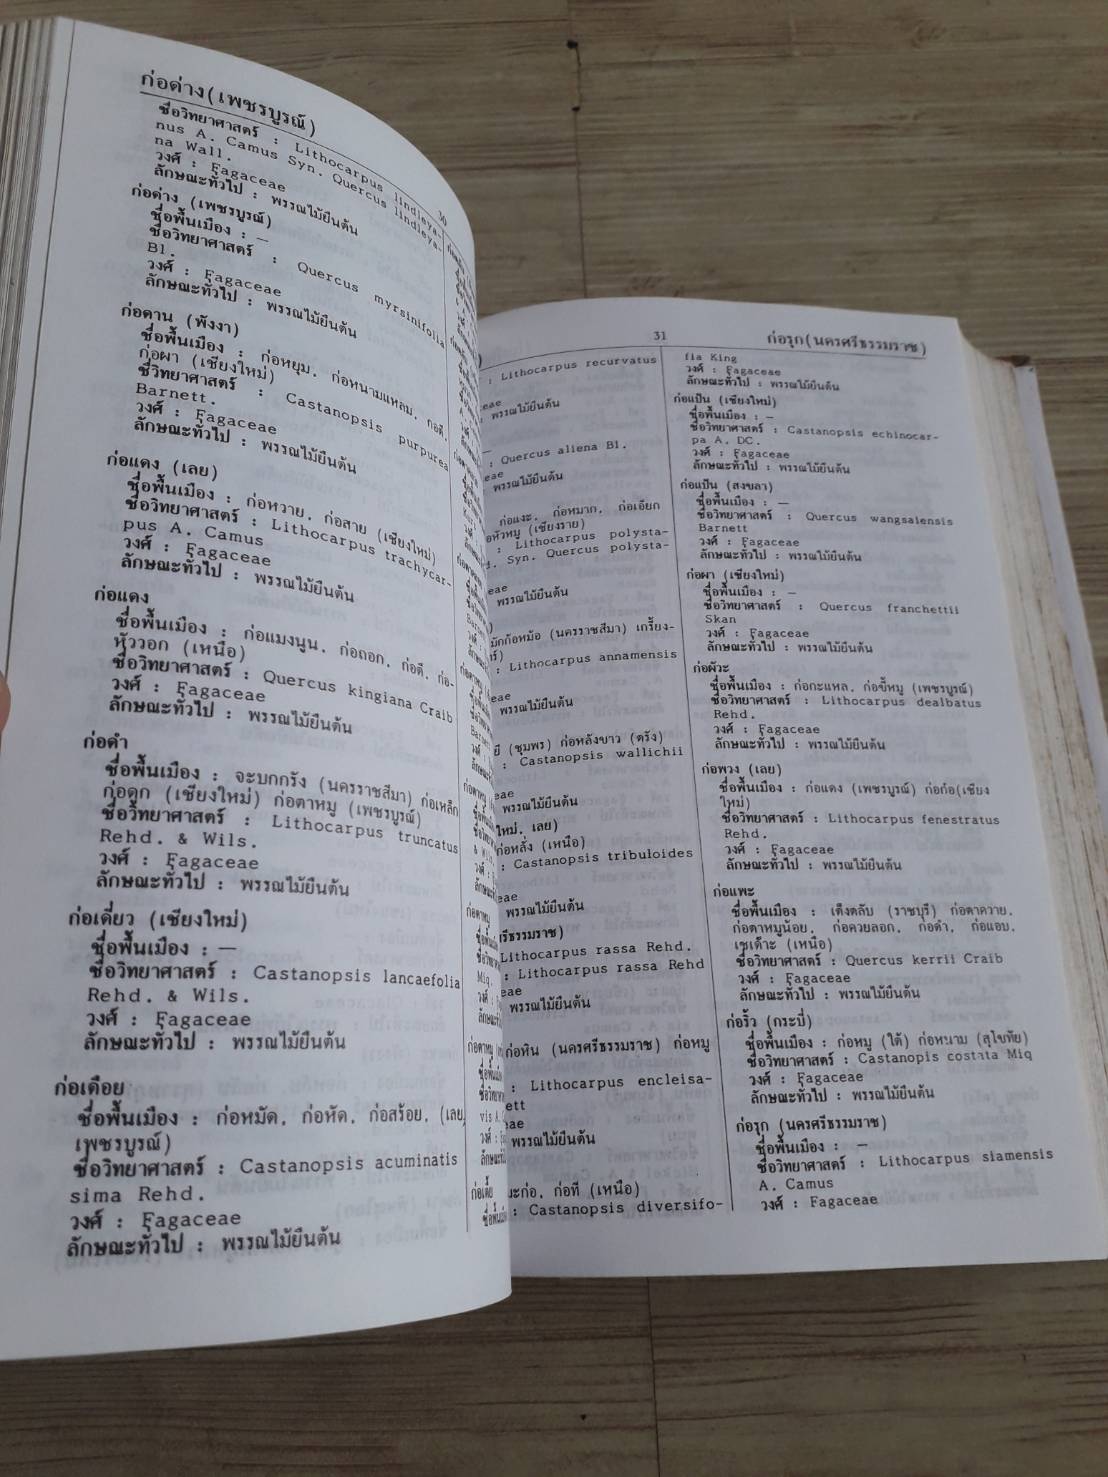 ก่อด่าง(เพชรบูรณ์)
30
ชื่อวิทยาศาสตร์ : Lithocarpus lindleya-
nus A. Camus Syn. Quercus lindleya-
na Wall.
วงศ์ : Fagaceae
ลักษณะทั่วไป : พรรณไม้ยืนต้น
ก่อด่าง (เพชรบูรณ์)
ชื่อพื้นเมือง : —
ชื่อวิทยาศาสตร์ : Quercus myrsinifolia
Bl.
วงศ์ : Fagaceae
ลักษณะทั่วไป : พรรณไม้ยืนต้น
ก่อดาน (พังงา)
ชื่อพื้นเมือง : ก่อหยุม, ก่อหนามแหลม, กอดี,
ก่อผา (เชียงใหม่)
ชื่วิทยาศาสตร์ : Castanopsis purpurea
Barnett.
วงศ์ : Fagaceae
ลักษณะทั่วไป : พรรณไม้ยืนต้น
ก่อแดง (เลย)
ชื่อพื้นเมือง : ก่อหวาย, ก่อสาย (เชียงใหม่)
ชื่อวิทยาศาสตร์ : Lithocarpus trachycar-
pus A. Camus
วงศ์ : Fagaceae
ลักษณะทั่วไป : พรรณไม้ยืนต้น
ก่อแดง
ชื่อพื้นเมือง : ก่อแมงนูน, ก่อถอก, ก่อตี, ก่อ-
หัววอก (เหนือ)
ชื่อวิทยาศาสตร์ : Quercus kingiana Craib
วงศ์ : Fagaceae
ลักษณะทั่วไป : พรรณไม้ยืนต้น
ก่อดำ
ชื่อพื้นเมือง : จะบกกรัง (นครราชสีมา) ก่อเหล็ก
ก่อดุก (เชียงใหม่) ก่อตาหมู (เพชรบูรณ์)
ชื่อวิทยาศาสตร์ : Lithocarpus truncatus
Rehd. & Wils.
วงศ์ : Fagaceae
ลักษณะทั่วไป : พรรณไม้ยืนต้น
ก่อเดี่ยว (เชียงใหม่)
ชื่อพื้นเมือง : —
ชื่อวิทยาศาสตร์ : Castanopsis lancaefolia
Rehd. & Wils.
วงศ์ : Fagaceae
ลักษณะทั่วไป : พรรณไม้ยืนต้น
ก่อเดือย
ชื่อพื้นเมือง : ก่อหมัด, ก่อหัด, ก่อสร้อย, (เลย,
เพชรบูรณ์)
ชื่อวิทยาศาสตร์ : Castanopsis acuminatis
sima Rehd.
วงศ์ : Fagaceae
ลักษณะทั่วไป : พรรณไม้ยืนต้น
31
ก่อรุก(นครศรีธรรมราช)
: Lithocarpus recurvatus
พรรณไม้ยืนต้น
: Quercus aliena Bl.
พรรณไม้ยืนต้น
ก่อแงะ, ก่อหมาก, ก่อเอียก
อหัวหมู (เชียงราย)
: Lithocarpus polysta-
Syn. Quercus polysta-
พรรณไม้ยืนต้น
มักก้อหม้อ (นครราชสีมา) เกรี้ยง-
: Lithocarpus annamensis
พรรณไม้ยืนต้น
(ชุมพร) ก่อหลังขาว (ตรัง)
: Castanopsis wallichii
พรรณไม้ยืนต้น
ใหม่, เลย)
ก่อหลั่ง (เหนือ)
: Castanopsis tribuloides
พรรณไม้ยืนต้น
รีธรรมราช)
Lithocarpus rassa Rehd.
: Lithocarpus rassa Rehd
พรรณไม้ยืนต้น
ก่อหิน (นครศรีธรรมราช) ก่อหมู
: Lithocarpus encleisa-
พรรณไม้ยืนต้น
มะก่อ, ก่อที (เหนือ)
: Castanopsis diversifo-
fia King
วงศ์ : Fagaceae
ลักษณะทั่วไป : พรรณไม้ยืนต้น
ก่อแป้น (เชียงใหม่)
ชื่อพื้นเมือง : —
ชื่อวิทยาศาสตร์ : Castanopsis echinocar-
pa A. DC.
วงศ์ : Fagaceae
ลักษณะทั่วไป : พรรณไม้ยืนต้น
ก่อแป้น (สงขลา)
ชื่อพื้นเมือง : —
ชื่อวิทยาศาสตร์ : Quercus wangsalensis
Barnett
วงศ์ : Fagaceae
ลักษณะทั่วไป : พรรณไม้ยืนต้น
ก่อผา (เชียงใหม่)
ชื่อพื้นเมือง : —
ชื่อวิทยาศาสตร์ : Quercus franchettii
Skan
วงศ์ : Fagaceae
ลักษณะทั่วไป : พรรณไม้ยืนต้น
ก่อผัวะ
ชื่อพื้นเมือง : ก่อกะแหล, ก่อขี้หมู (เพชรบูรณ์)
ชื่อวิทยาศาสตร์ : Lithocarpus dealbatus
Rehd.
วงศ์ : Fagaceae
ลักษณะทั่วไป : พรรณไม้ยืนต้น
ก่อพวง (เลย)
ชื่อพื้นเมือง : ก่อแดง (เพชรบูรณ์) ก่อก๋อ(เชียง
ใหม่)
ชื่อวิทยาศาสตร์ : Lithocarpus fenestratus
Rehd.
วงศ์ : Fagaceae
ลักษณะทั่วไป : พรรณไม้ยืนต้น
ก่อแพะ
ชื่อพื้นเมือง : เต็งตลับ (ราชบุรี) ก่อตาควาย,
ก่อตาหมูน้อย, ก่อควยลอก, ก่อดำ, ก่อแอบ,
เซเด๊าะ (เหนือ)
ชื่อวิทยาศาสตร์ : Quercus kerrii Craib
วงศ์ : Fagaceae
ลักษณะทั่วไป : พรรณไม้ยืนต้น
ก่อริ้ว (กระบี่)
ชื่อพื้นเมือง : ก่อหมู (ใต้) ก่อหนาม (สุโขทัย)
ชื่อวิทยาศาสตร์ : Castanopis costata Miq
วงศ์ : Fagaceae
ลักษณะทั่วไป : พรรณไม้ยืนต้น
ก่อรุก (นครศรีธรรมราช)
ชื่อพื้นเมือง : —
ชื่อวิทยาศาสตร์ : Lithocarpus siamensis
A. Camus
วงศ์ : Fagaceae